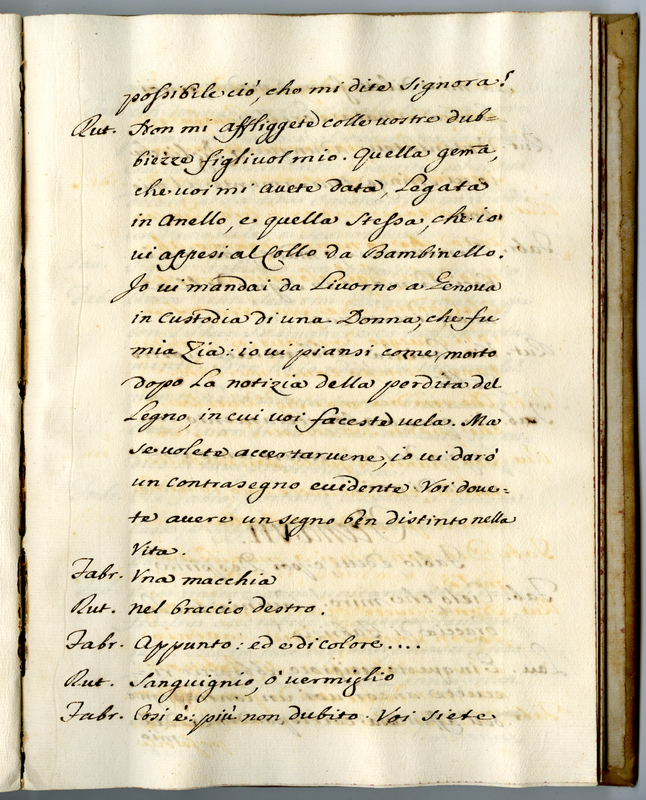 possibile ciò, che mi dite Signora?
Rut. Non mi affliggete colle vostre dub=
biezze figlivol mio. Quella gema,
che voi mi avete data, Legata
in Anello, e quella Stessa, che io
vi appesi al Collo da Bambinello.
Jo vi mandai da Livorno a Genova
in custodia di una Donna, che fu
mia Zia: io vi piansi come, morto
dopo La notizia della perdita del
Legno, in cui voi faceste vela. Ma
se volete accertarvene, io vi darò
un contrasegno evidente. Voi dove=
te avere un segno ben distinto nella
Vita.
Fabr. Vna macchia
Rut. nel braccio destro.
Fabr. Appunto: ed e di colore....
Rut. Sanguignio, ò vermiglio
Fabr. Cosi è: più non dubito. Voi siete